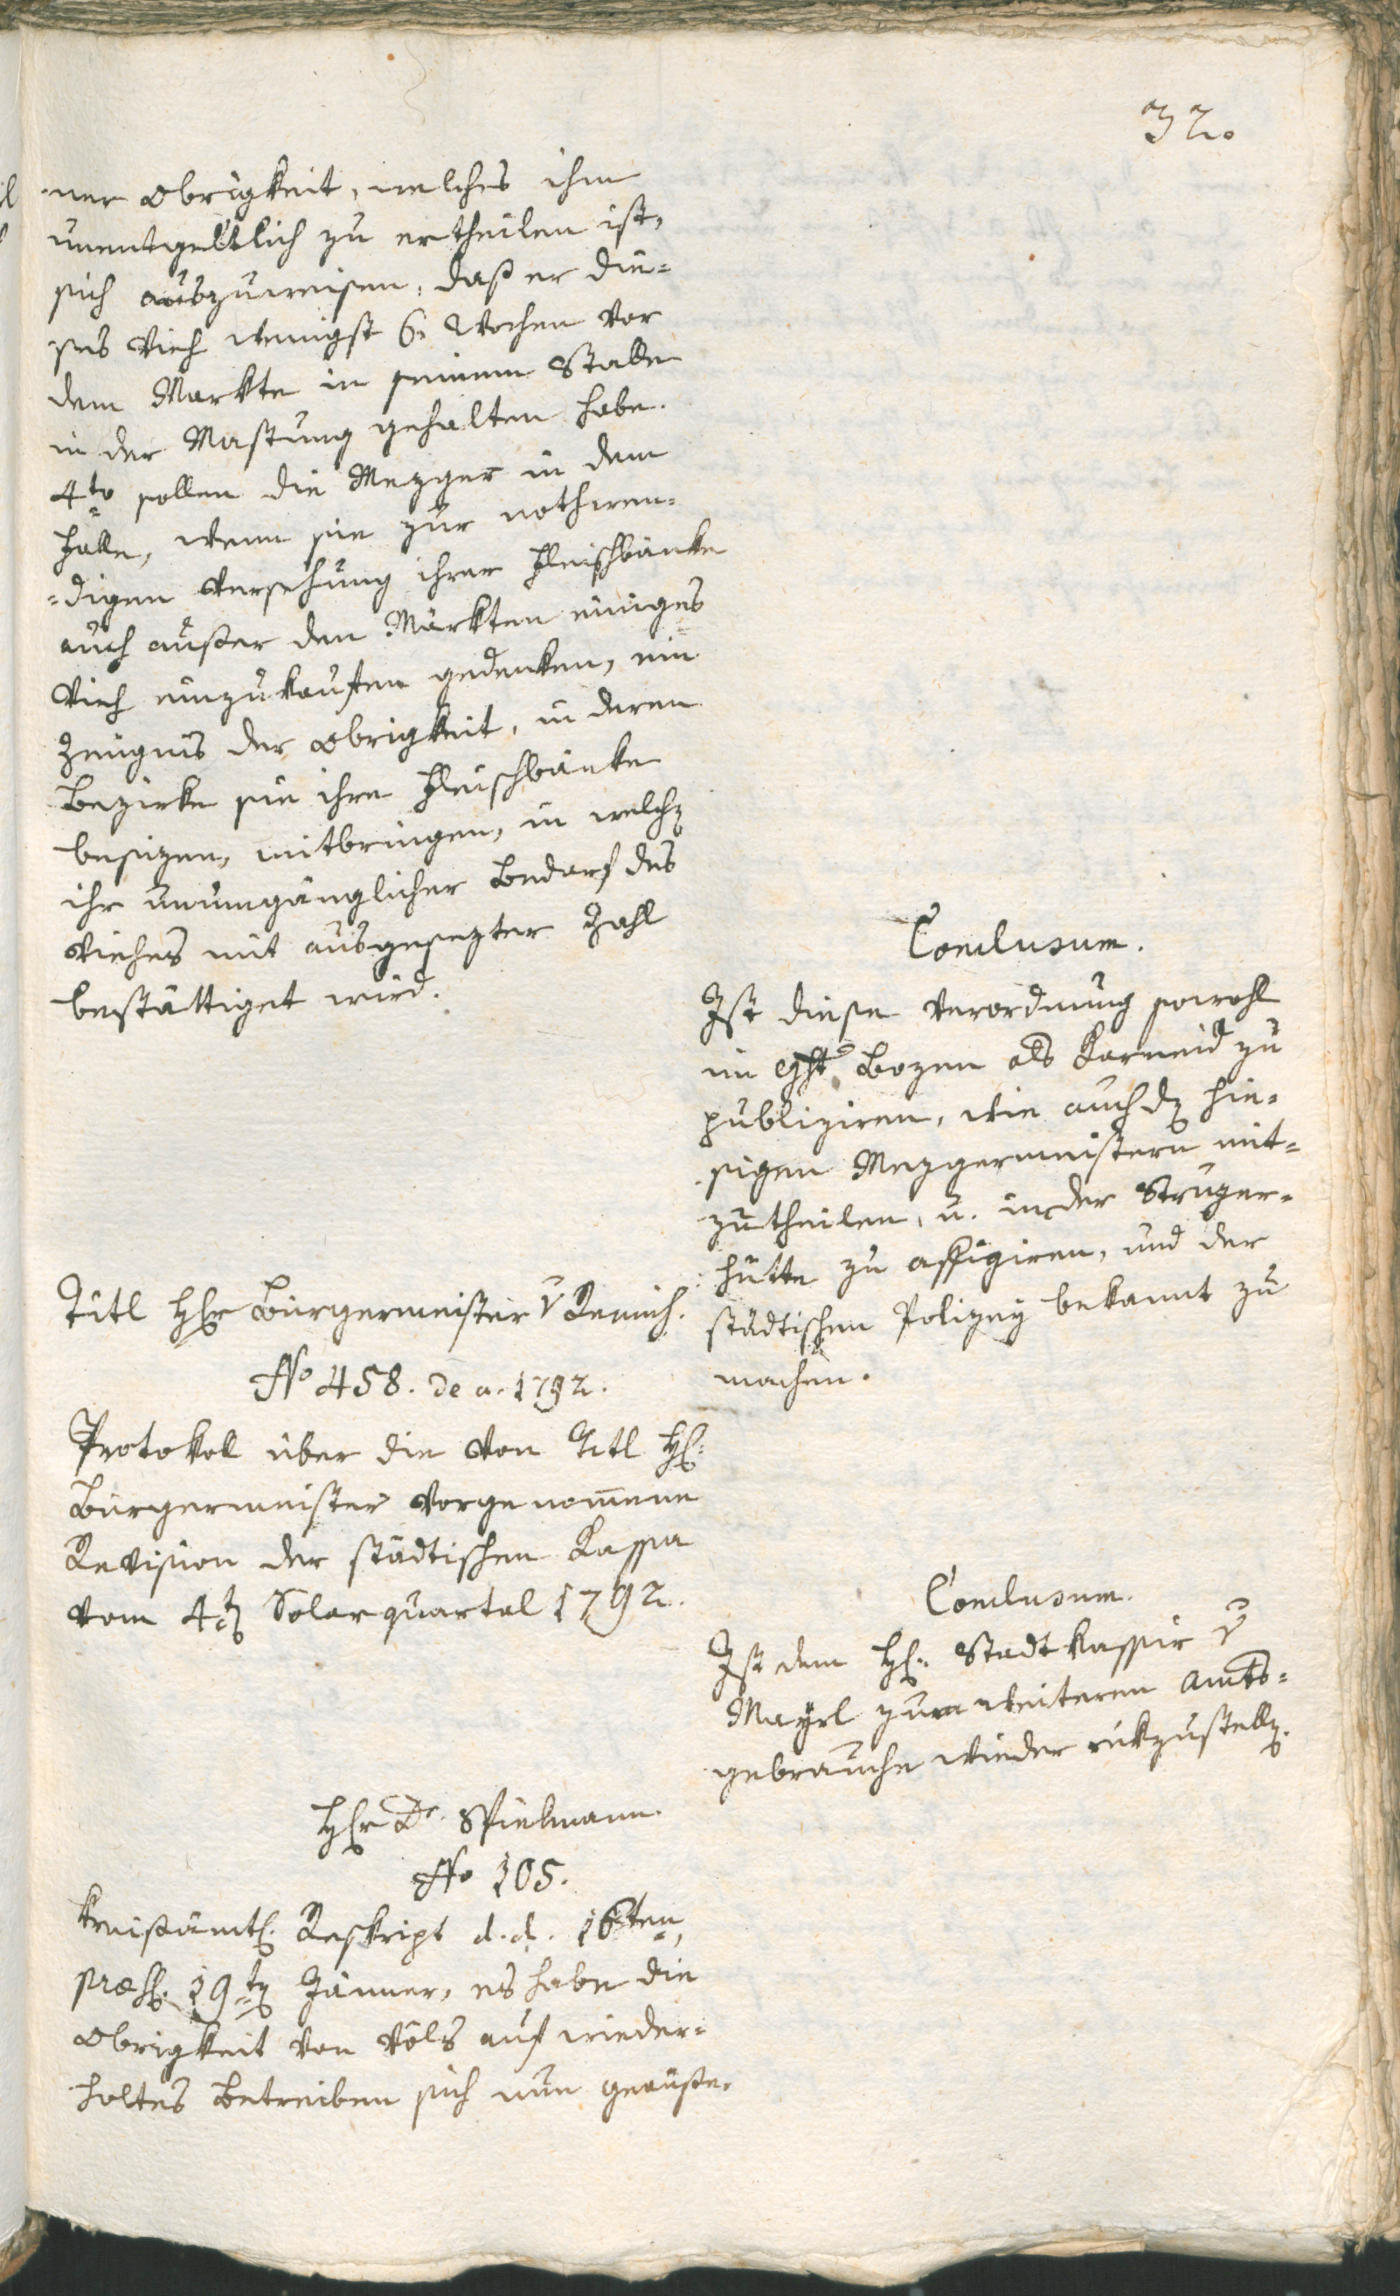 32.
ner Obrigkeit, welches ihm
unentgeltlich zu ertheilen ist,
sich auszuweisen, daß er die-
ses Vieh wenigst 6. Wochen vor
dem Markte in seinem Stalle
in der Mastung gehalten habe.
4to sollen die Mezger in dem
Falle, wenn sie zur nothwen-
-digen Versehung ihrer Fleischbänke
auch außer den Märkten einiges
Vieh einzukaufen gedenken, ein
Zeugnis der Obrigkeit, in deren
Bezirke sie ihre Fleischbänke
besizen, mitbringen, in welch
ihr unumgänglicher Bedarf des
Viehes mit ausgesezter Zahl
bestättiget wird.
Conclusum.
Ist diese Verordnung sowohl
im Ght Bozen als Karneid zu
publiziren, wie auch d hie-
sigen Mezgermeistern mit-
zutheilen, u. in der Strazer-
hütte zu affigiren, und der
städtischen Polizey bekannt zu
machen.
Titl Hhr Bürgermeister v Remich.
No 458. de a. 1792.
Protokoll über die von Titl H:
Bürgermeister vorgenom̅ene
Revision der städtischen Kassa
vom 4t Solarquartal 1792.
Conclusum.
Ist dem H: Stadtkassir v
Mayrl zum weiteren Amts-
gebrauche wieder rükzustell.
Hhr Dr. Spielmann.
No 105.
Kreisämtl. Reskript d. d. 16ten,
præs. 19t Jänner, es habe die
Obrigkeit von Völs auf wieder-
holtes Betreiben sich nun geäuße-